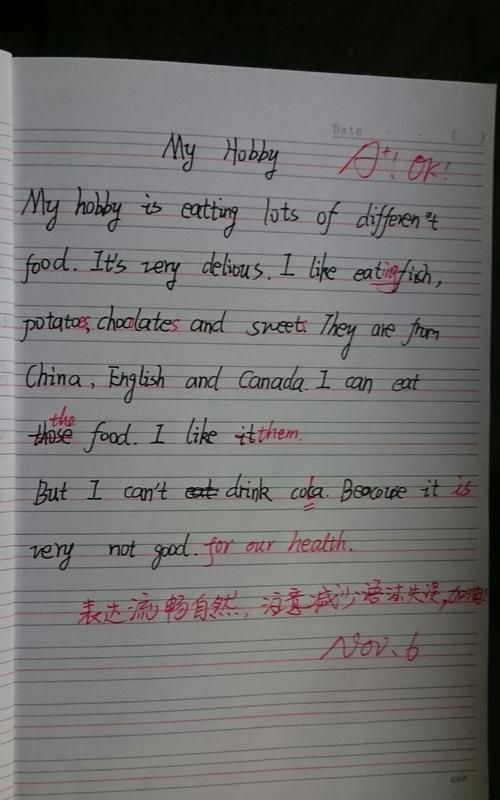 Date . . ( )
My Hobby A+! OK!
My hobby is eatting lots of different
food. It's very delious. I like eating fish,
potatoes, chocolates and sweets They are from
China, English and Canada. I can eat
the
those food. I like it them.
But I can't eat drink cola. Beocause it is
very not good. for our health.
表达流畅自然,注意减少语法失误,加油!
Nov. 6